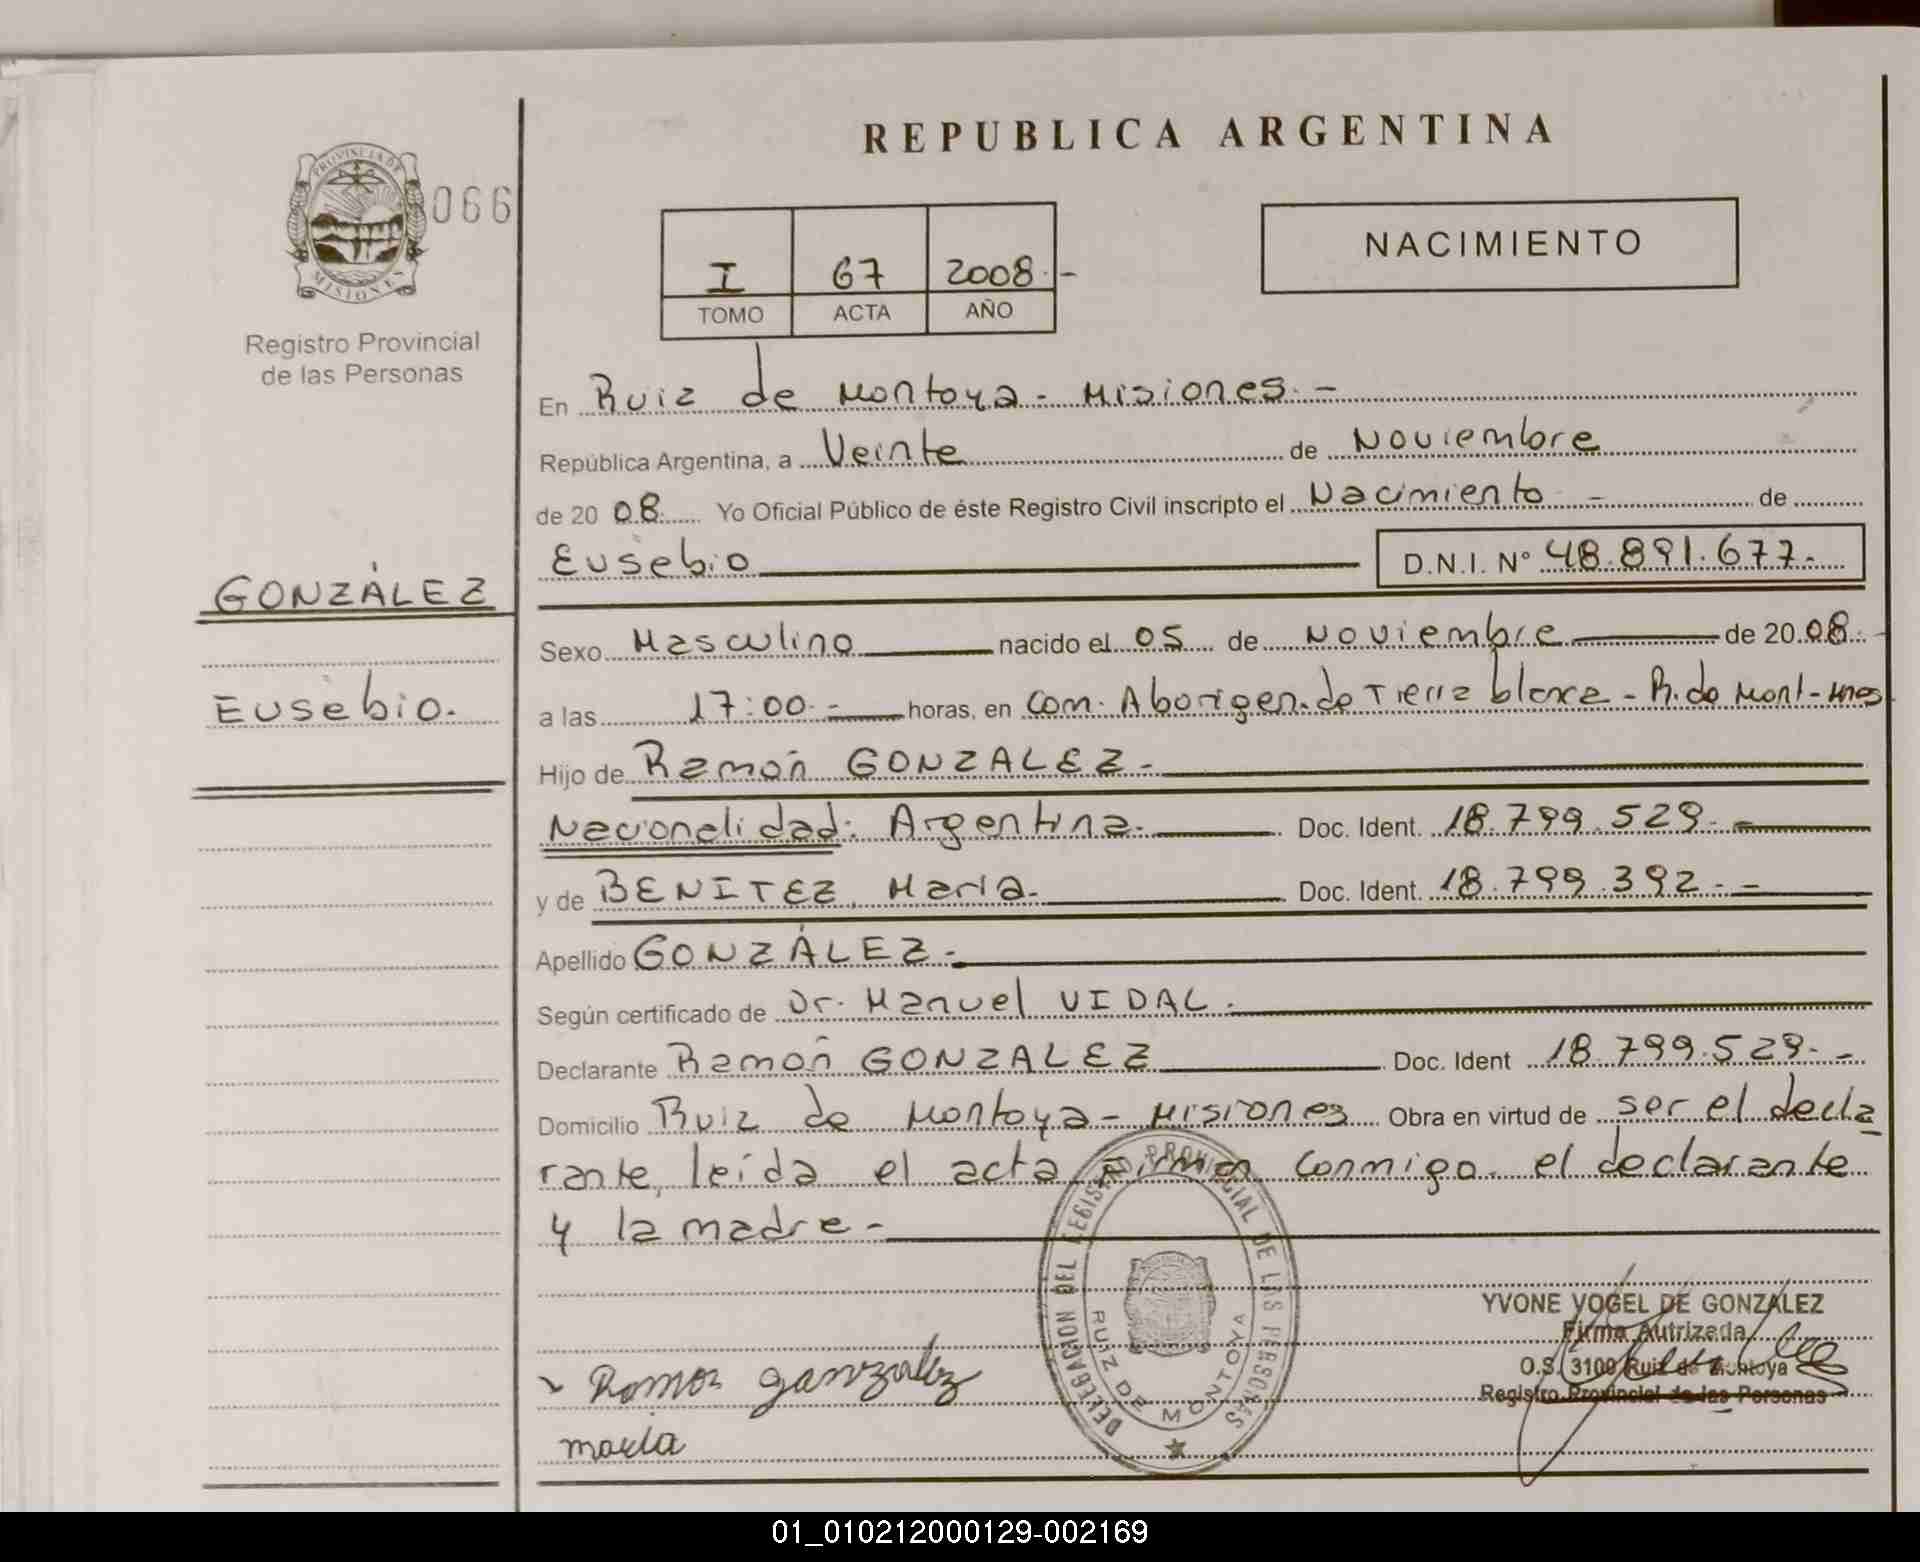 REPUBLICA ARGENTINA
PROVINCIA DE
MISIONES
066
Registro Provincial
de las Personas
I 67 2008.-
TOMO ACTA AÑO
NACIMIENTO
En Ruiz de Montoya - Misiones.-
República Argentina, a Veinte de Noviembre
de 20 08. Yo Oficial Público de éste Registro Civil inscripto el Nacimiento - de
Eusebio D.N.I. Nº 48.891.677.-
GONZÁLEZ
Eusebio.
Sexo Masculino nacido el 05 de Noviembre de 20 08.-
a las 17:00.- horas, en Com. Aborigen de Tierra blanca - R. de Mont - Mnes
Hijo de Ramón GONZALEZ.-
Nacionalidad: Argentina. Doc. Ident. 18.799.529.-
y de BENITEZ, María. Doc. Ident. 18.799.392.-
Apellido GONZÁLEZ.-
Según certificado de Dr. Manuel VIDAL.
Declarante Ramón GONZALEZ Doc. Ident 18.799.529.-
Domicilio Ruiz de Montoya - Misiones Obra en virtud de ser el decla
rante, leída el acta firman conmigo el declarante
y la madre -
DELEGACION DEL REGISTRO PROVINCIAL DE LAS PERSONAS
RUIZ DE MONTOYA
YVONE VOGEL DE GONZALEZ
Firma Autrizada
O.S. 3100 Ruiz de Montoya
Registro Provincial de las Personas
Ramon ganzalez
maria
01_010212000129-002169